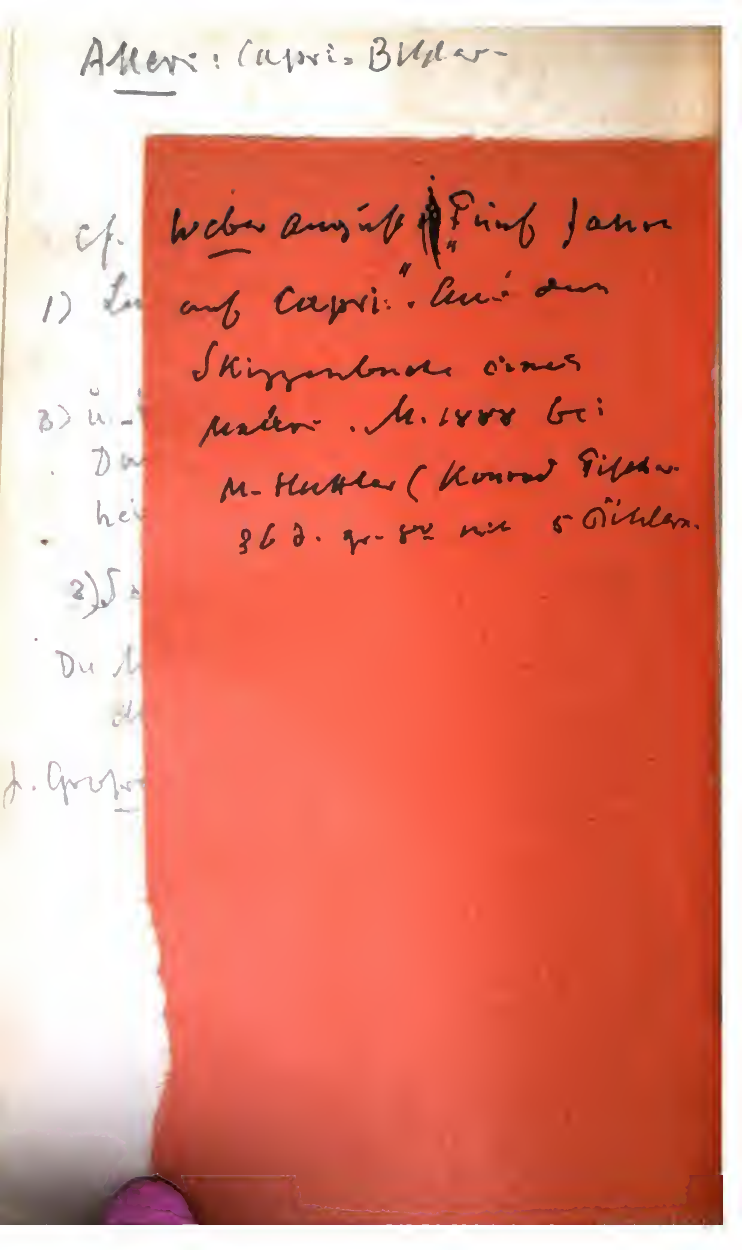 Allers: Capri-Bilder-
cf. Weber August „Fünf Jahre
1) auf Capri". Aus dem
Skizzenbuche eines
3) Malers. M. 1888 bei
M. Huttler (Konrad Fischer
36 S. gr. 8° mit 5 Bildern.
2)
Die